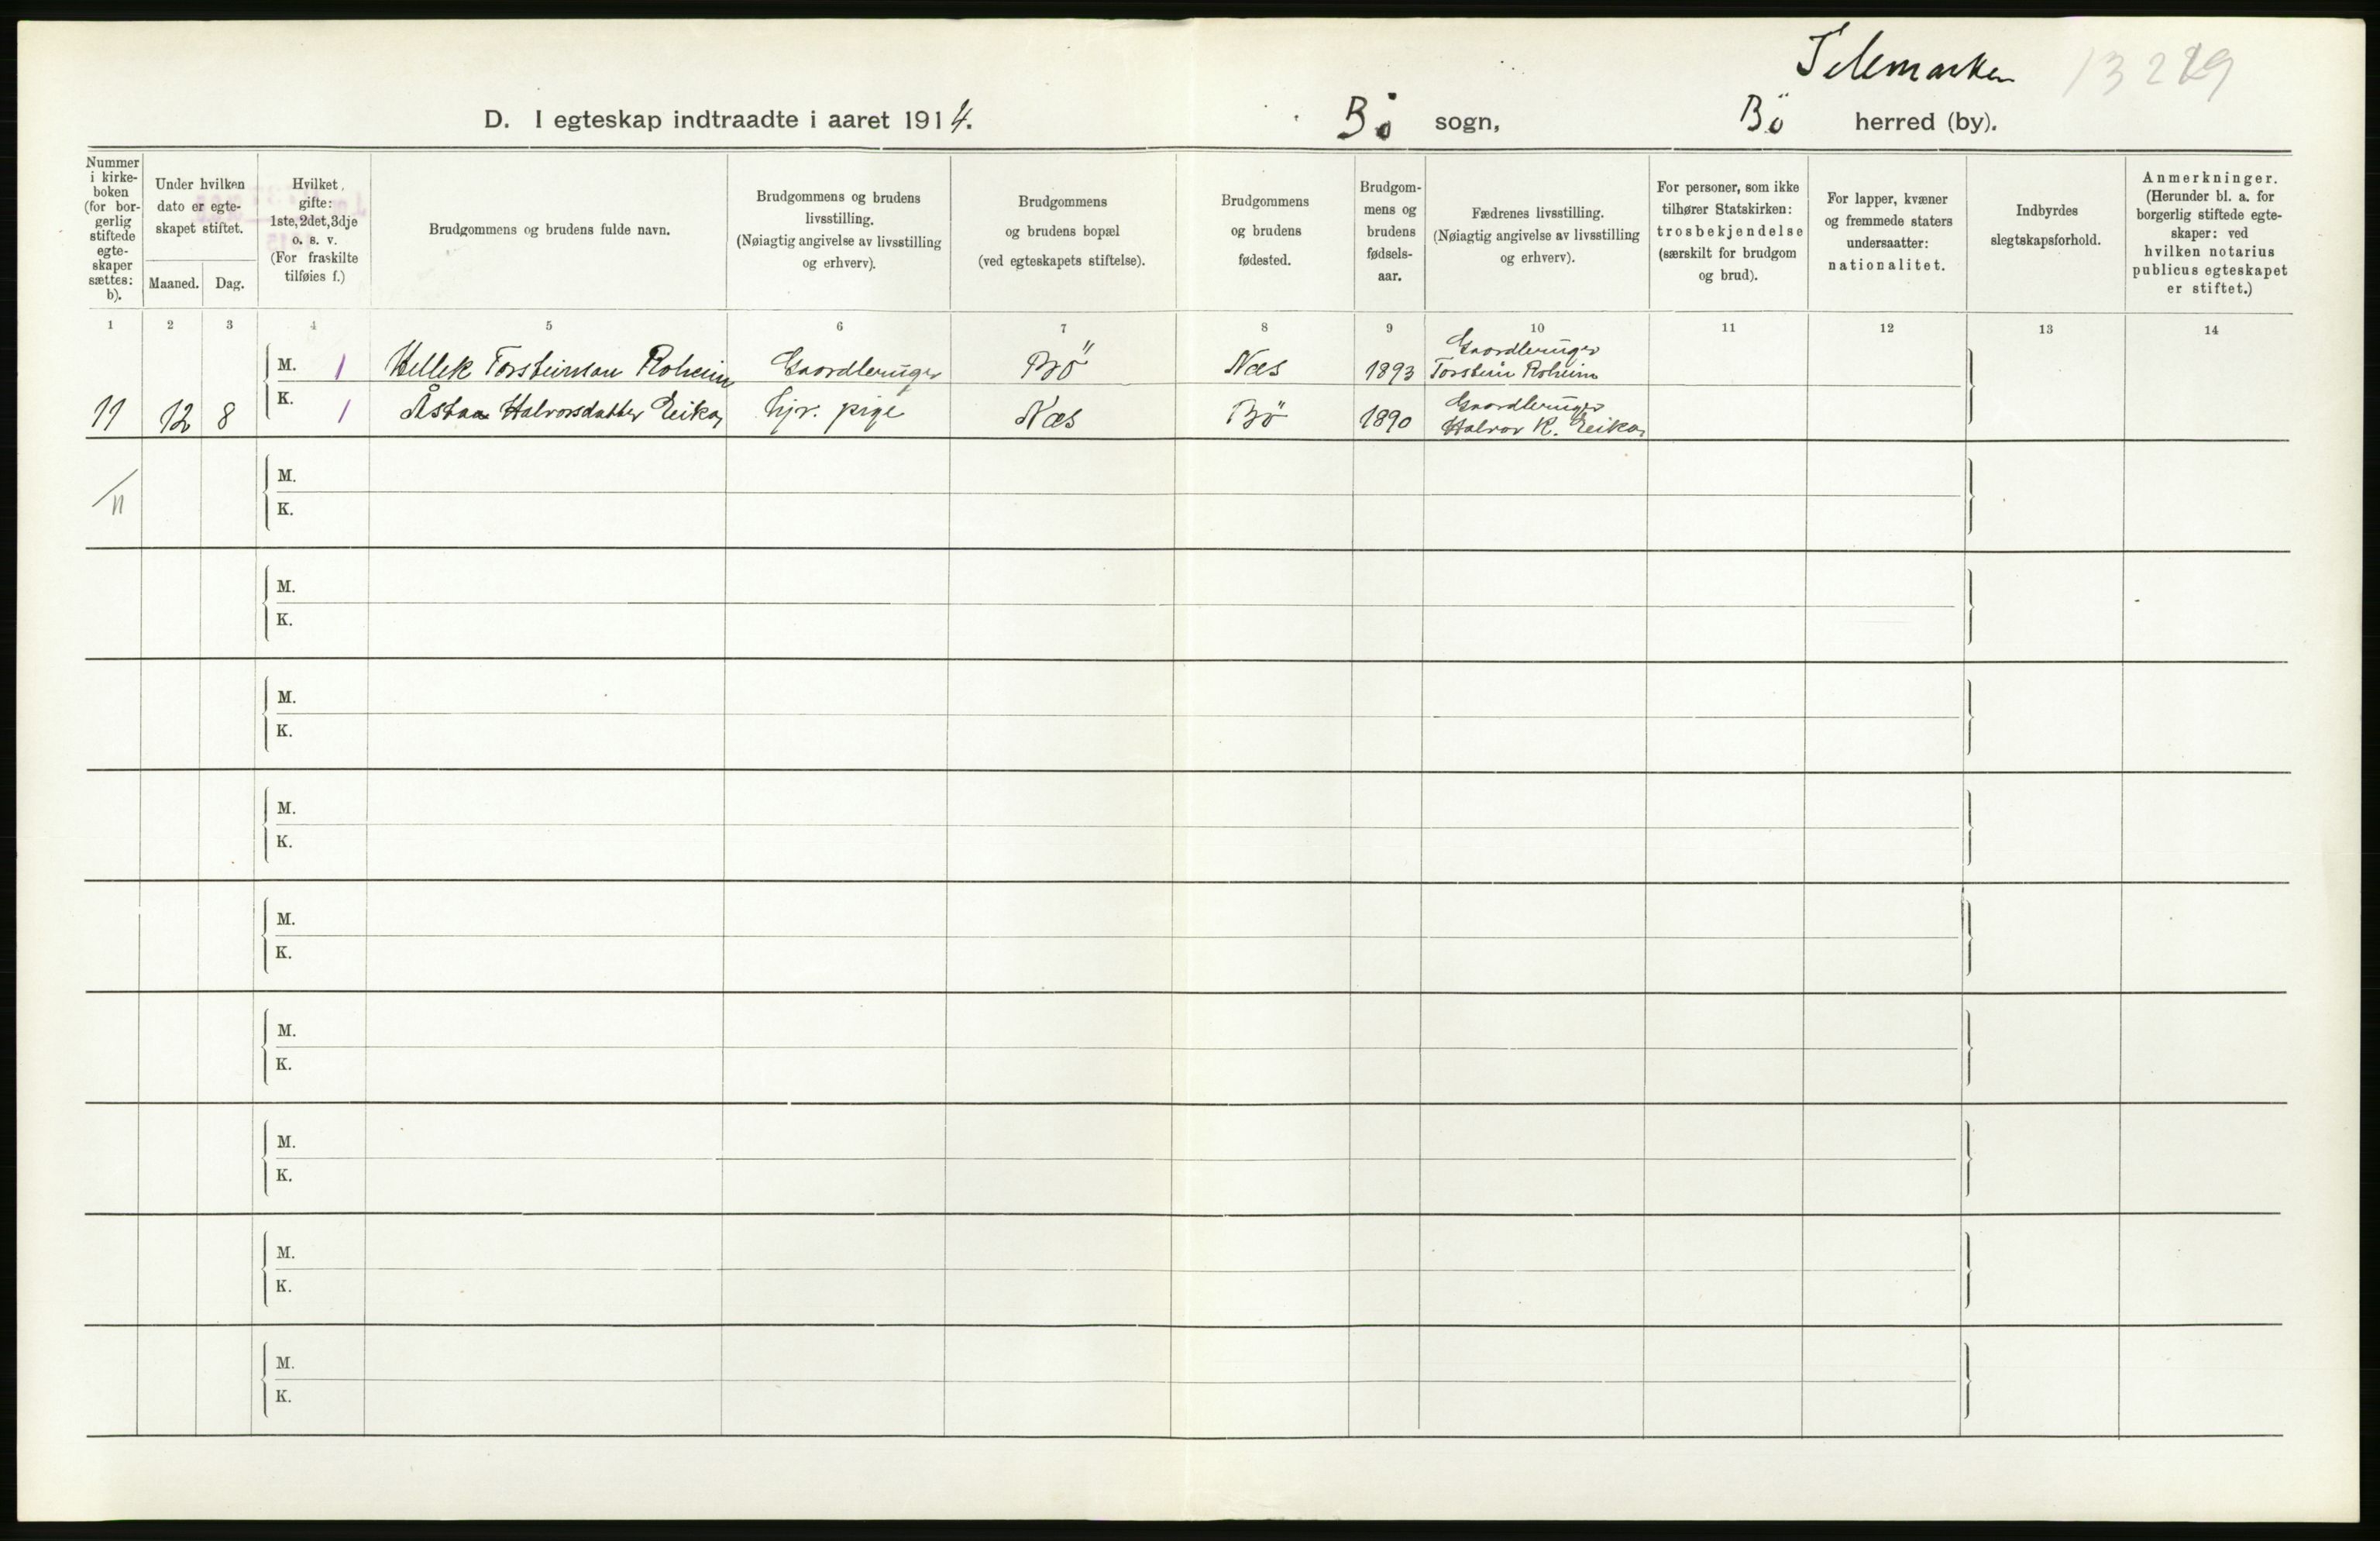 Telemarken 13229
D. I egteskap indtraadte i aaret 1914. Bö sogn, Bö herred (by).
Nummer i kirke-boken (for bor-gerlig stiftede egte-skaper sættes: b).
Under hvilken dato er egte-skapet stiftet.
Maaned. Dag.
Hvilket gifte: 1ste, 2det, 3dje o. s. v. (For fraskilte tilføies f.)
Brudgommens og brudens fulde navn.
Brudgommens og brudens livsstilling. (Nøiagtig angivelse av livsstilling og erhverv).
Brudgommens og brudens bopæl (ved egteskapets stiftelse).
Brudgommens og brudens fødested.
Brudgom-mens og brudens fødsels-aar.
Fædrenes livsstilling. (Nøiagtig angivelse av livsstilling og erhverv).
For personer, som ikke tilhører Statskirken: trosbekjendelse (særskilt for brudgom og brud).
For lapper, kvæner og fremmede staters undersaatter: nationalitet.
Indbyrdes slegtskapsforhold.
Anmerkninger. (Herunder bl. a. for borgerlig stiftede egte-skaper: ved hvilken notarius publicus egteskapet er stiftet.)
1 2 3 4 5 6 7 8 9 10 11 12 13 14
M. 1 Hellek Torsteinson Roheim Gaardbruger Bö Næs 1893 Gaardbruger Torstein Roheim
11 12 8 K. 1 Åstaa Halvorsdatter Eika hjv. pige Næs Bö 1890 Gaardbruger Halvor K. Eika
M.
11
K.
M.
K.
M.
K.
M.
K.
M.
K.
M.
K.
M.
K.
M.
K.
M.
K.